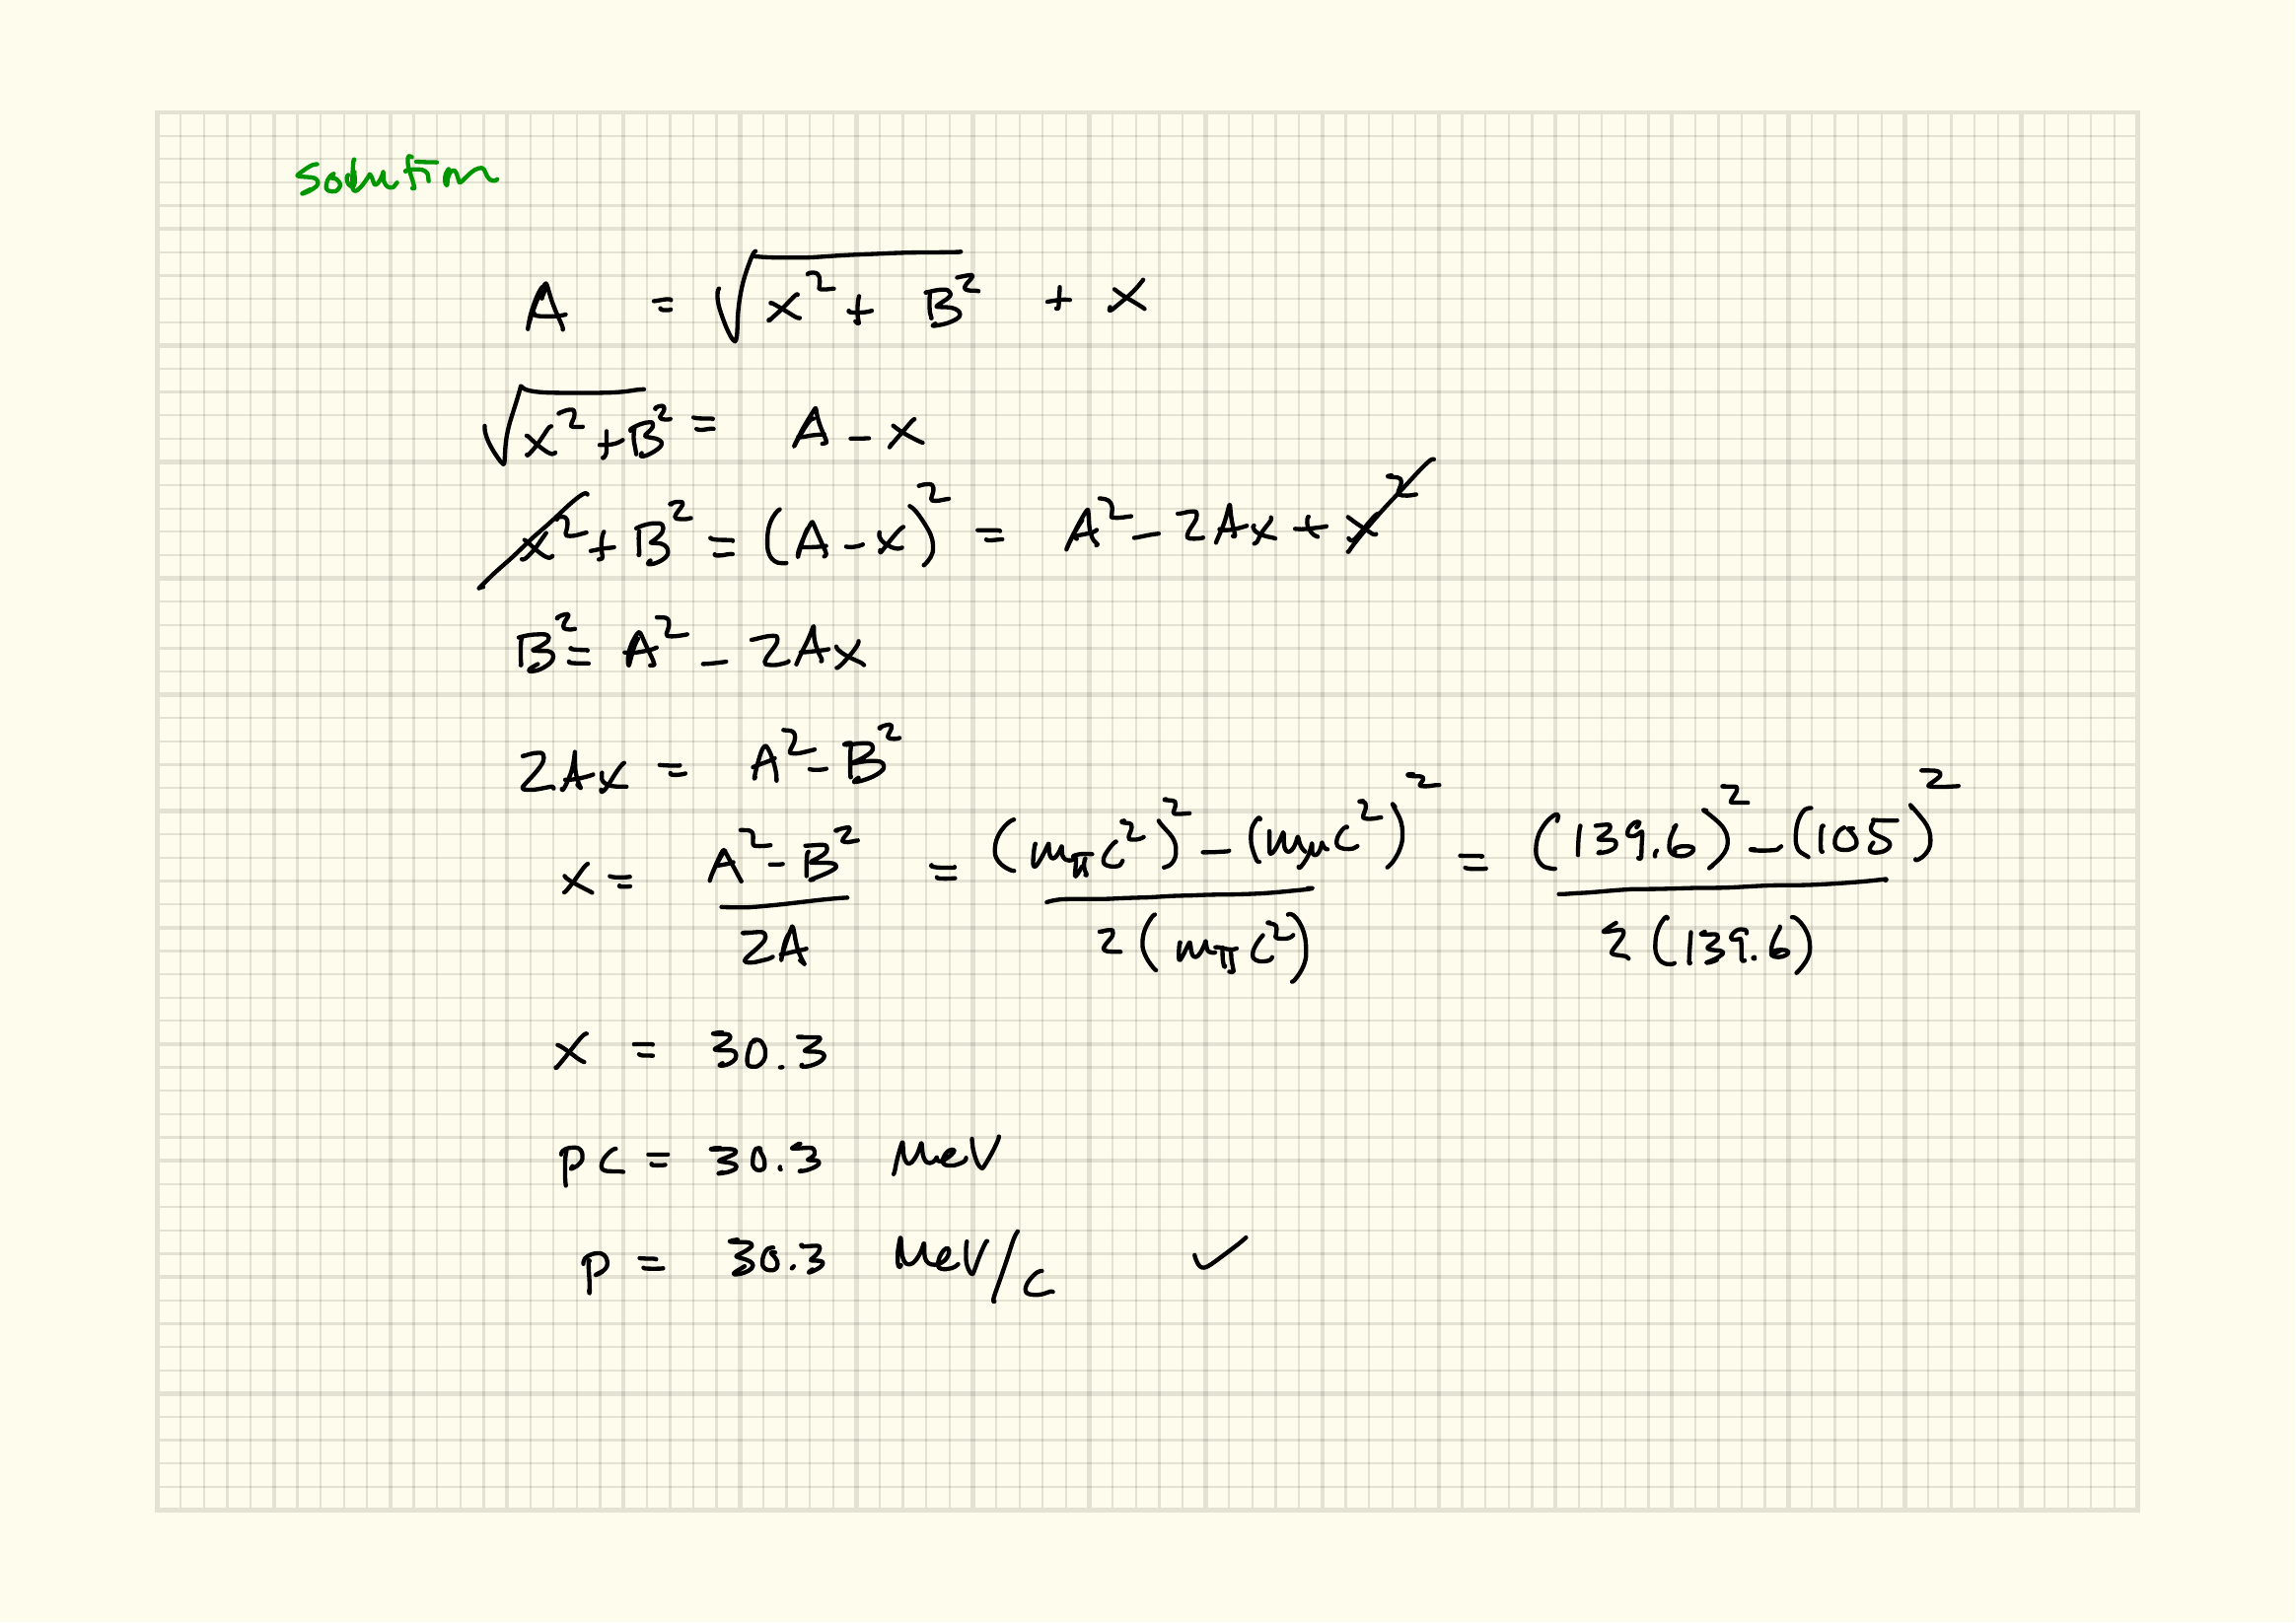 Solution
A = √(x² + B²) + x
√(x² + B²) = A - x
x² + B² = (A - x)² = A² - 2Ax + x²
B² = A² - 2Ax
2Ax = A² - B²
x = (A² - B²)/(2A) = ((mπc²)² - (mμc²)²)/(2(mπc²)) = ((139.6)² - (105)²)/(2(139.6))
x = 30.3
pc = 30.3 MeV
p = 30.3 MeV/c ✓